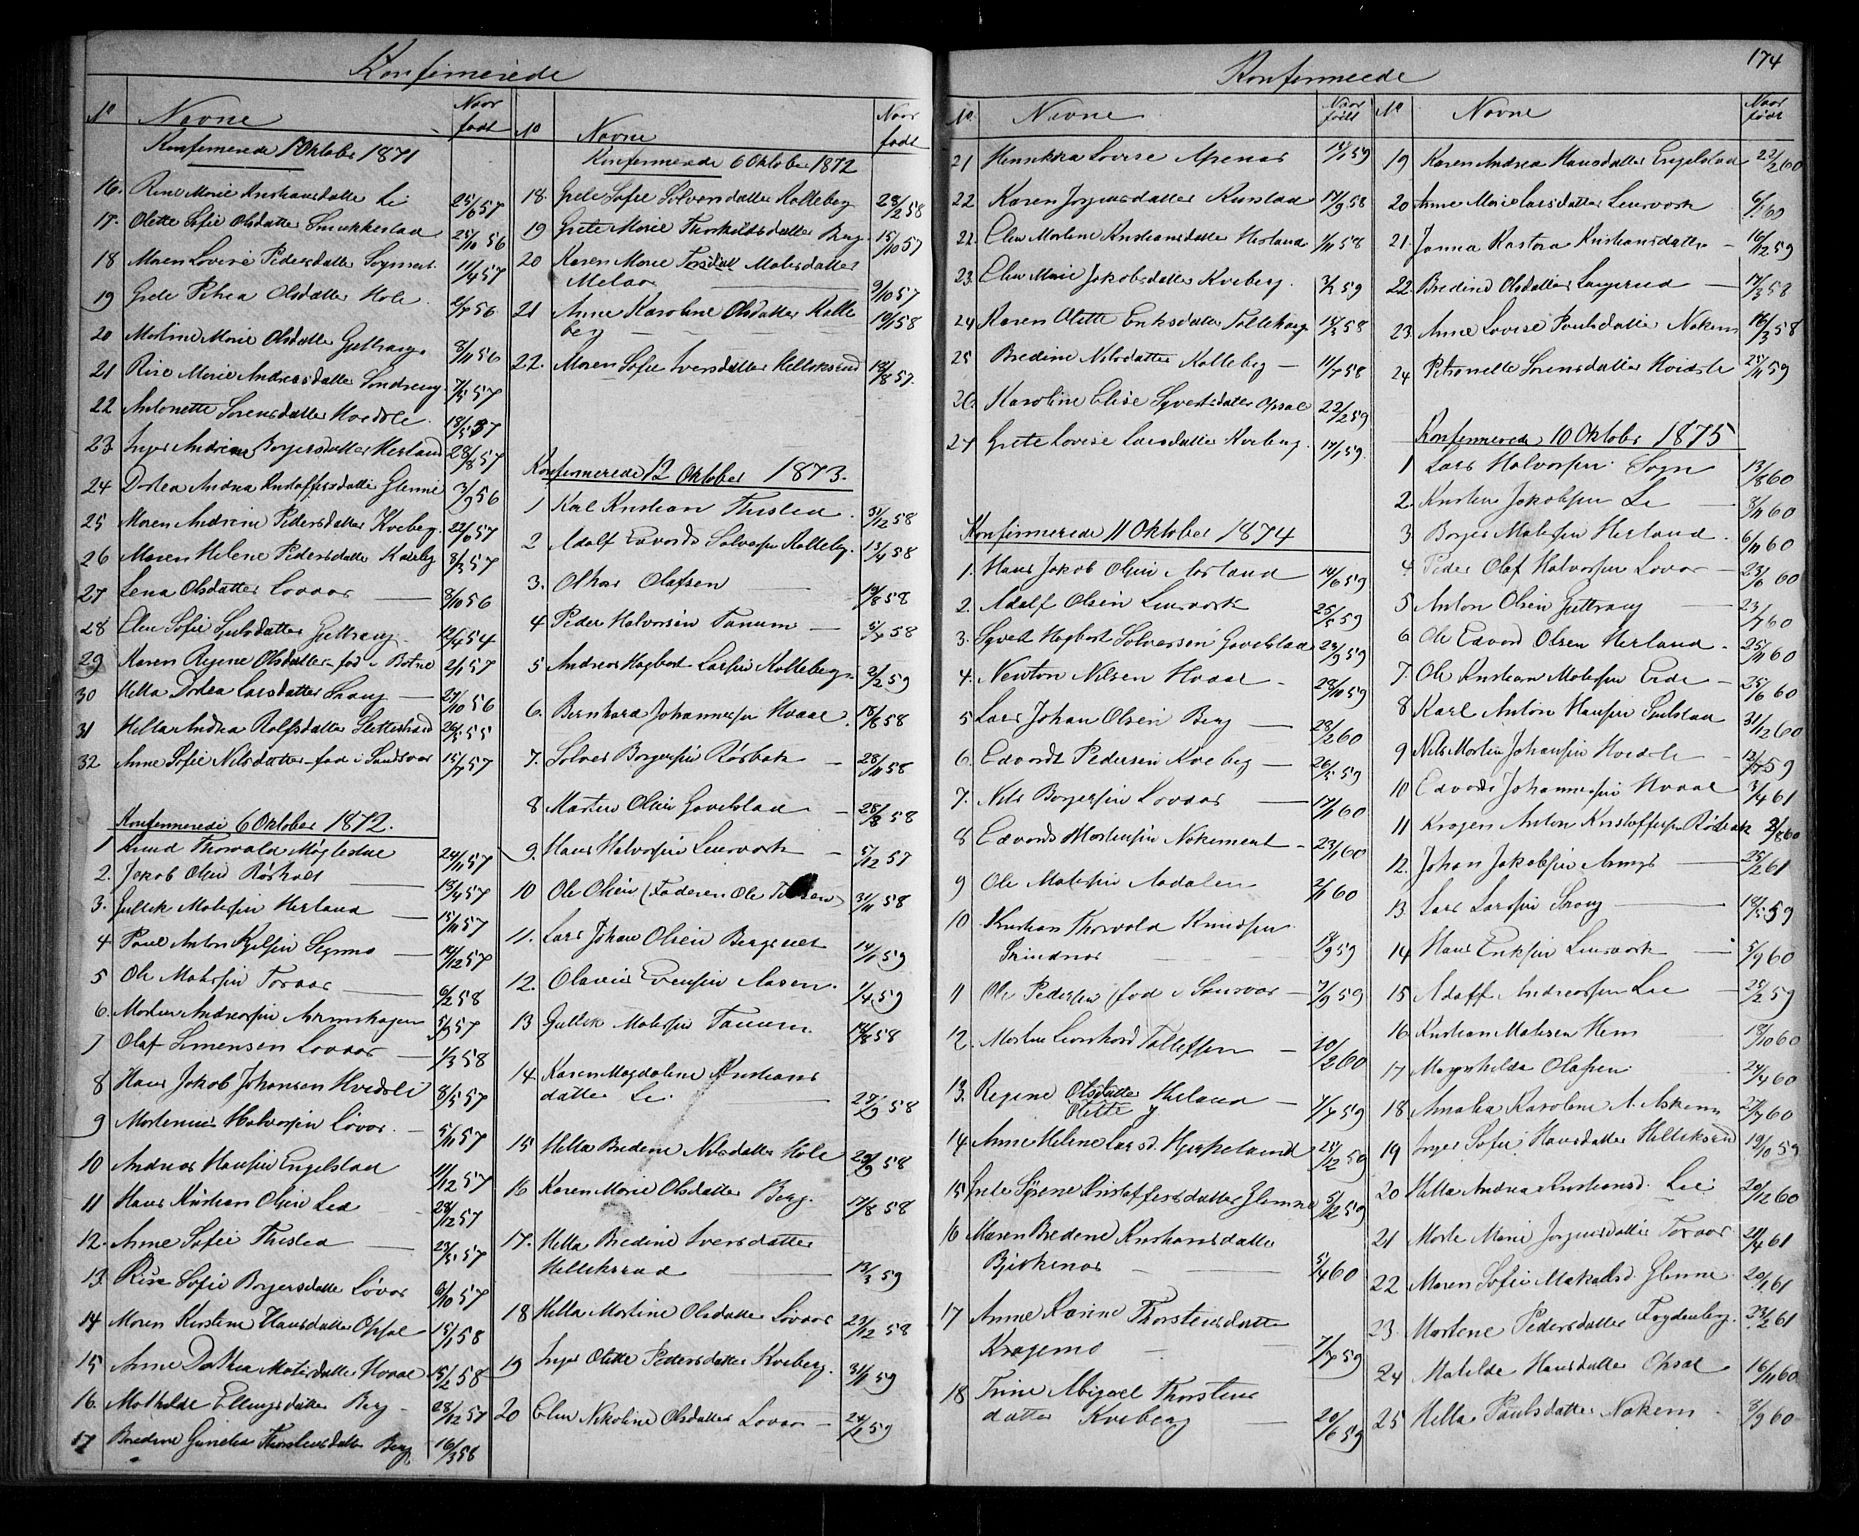 Konfirmerede
No Navne Naar født
Konfirmerede 1 Oktober 1871
16. Rine Marie Kristiansdatter Li 25/6 57
17. Olette Sofie Olsdatter Smukkestad 25/10 56
18 Maren Lovise Pedersdatter 11/4 57
19 Grete Petrea Olsdatter Hole 56
20 Martine Marie Olsdatter 8/11 56
21 Rine Marie Andreasdatter 7/5 57
22 Antonette Sørensdatter Hvidste 18/5 57
23 Inger Andrine Borgersdatter Herland 28/8 57
24 Dortea Andrea Kristoffersdatter Glenne 3/9 56
25 Maren Andrine Pedersdatter Kveberg 22/6 57
26 Maren Helene Pedersdatter 3/3 57
27 Lena Olsdatter Lovaas 8/10 56
28 Elen Sofie 12/4 54
29 Karen Regine Olsdatter fød i Botne 2/1 57
30 Hella Dortea Larsdatter Skoug 27/10 56
31 Hella Andrea Rolfsdatter 26/5 55
32 Anne Sofie Nilsdatter fød i Sandsvær 15/7 57
Konfirmerede 6 Oktober 1872.
1 Knud Thorvald 24/11 57
2. Jakob Olsen Røsholt 13/4 57
3. Gullik Matesen Herland 15/11 57
4 Paul Anton 14/12 57
5 Ole Matesen Foraas 6/2 58
6. Morten Andreassen 5/3 57
7 Olaf Simensen Lovaas 1/3 58
8 Hans Jakob Johansen Hvidste 8/5 57
9 Martenius Halvorsen Lovas 5/11 57
10 Andreas Hansen Engelstad 11/12 57
11 Hans Kristian Olsen Lea 28/12 57
12. Anne Sofie Thislea 23/5 57
13. Rine Sofie Borgersdatter Løvas 6/10 57
14 Maren Kirstine Hansdatter Opsal 15/1 58
15 Anne Dortea Matisdatter Hvaal 15/2 58
16. Mathilde Ellingsdatter Berg 28/12 57
17 Bredine Gunelia Thorstensdatter Berg 16/3 58
No Navne Naar født
Konfirmerede 6 Oktober 1872
18. Grete Sofie Solversdatter Kolleberg 28/2 58
19 Grete Marie Thorkildsdatter Berg 15/10 57
20 Karen Marie Matesdatter
Melaas 9/10 57
21 Anne Karoline Olsdatter Kolle
berg 19/1 58
22. Maren Sofie Iversdatter Helleksrud 18/8 57.
Konfirmerede 12 Oktober 1873.
1 Karl Kristian Thislea 31/12 58
2 Adolf Edvards Solversen Kolleberg. 13/4 58
3. Othar Olafsen 19/8 58
4 Peder Halvorsen Tanum 5/7 58
5 Andreas Hagbart Larsen Kolleberg 2/2 59
6. Bernhard Johannesen Hvaal. 18/8 58
7. Solver Borgersen Røsbak 28/11 58
8 Martin Olsen Gavelstad 28/8 58
9. Hans Halvorsen Leursvork 5/12 57
10 Ole Olsen (Faderen Ole 31/11 58
11. Lars Johan Olsen 14/1 59
12. Olavus Evensen Aasen. 1/4 59
13 Gullik Matesen Tanum 14/8 58
14 Karen Magdalene Kristians
datter Le. 27/9 58
15 Hella Bredine Nilsdatter Hole 20/9 58
16 Karen Marie Olsdatter Berg. 17/8 58
17. Hella Bredine Iversdatter
Helleksrud 13/3 59
18 Hella Martine Olsdatter Lovaas 23/12 58
19 Inger Olette Pedersdatter Kveberg. 31/1 59
20 Elen Nikoline Olsdatter Lovas 24/1 59
Konfirmerede
174
No Navne Naar født
21 Henrikka Lovise Apenæs 14/1 59
22 Karen Jorgensdatter 17/9 58
22. Elen Martine Kristiansdatter Herland 1/11 58
23. Elen Marie Jakobsdatter Kveberg. 59
24 Karen Olette Eriksdatter 58
25 Bredine Nilsdatter Kolleberg 11/7 58
26. Karoline Elise Syvertsdatter Opsal 22/2 59
27 Grete Lovise Larsdatter Kveberg. 17/1 59.
Konfirmerede 11 Oktober 1874
1. Hans Jakob Olsen Aasland 14/6 59
2. Adolf Olsen Leursvork 25/5 59
3. Syvert Hagbart Solversen Gavelstad 24/9 59
4. Newton Nilsen Hvaal 28/10 59
5 Lars Johan Olsen Berg 28/2 60
6. Edvardt Pedersen Kveberg 26/5 59
7. Nils Borgersen Lovaas 17/11 60
8 Edvards Mortensen Nokement 23/11 60
9 Ole Matesen Aadalen 2/11 60
10 Kristian Thorvald Knudsen
Trindnes 18/9 59
11 Ole Pedersen (fød i Sansvær 7/9 59
12. Martin Leonhard Tollefsen 10/2 60
13. Regine Olsdatter Herland 7/7 59
Olette
14 Anne Helene Larsd. Hjerpeland 24/12 59
15 Grete Sørene Kristoffersdatter Glenne 5/12 59
16 Maren Bredene Kristiansdatter
Bjerkenæs 5/4 60
17 Anne Karine Thorstensdatter
Kragemo 7/7 59
18 Trine Abigael Thorstens
datter Kveberg 20/6 59
No Navne Naar født
19 Karen Andrea Hansdatter Engelstad 22/2 60
20 Anne Marie Larsdatter Leursvork 6/1 60
21. Janna Kastora Kristiansdatter 16/12 59
22. Bredine Olsdatter Langerud 17/3 58
23. Anne Lovise Paulsdatter Nokem 16/3 58
24 Petronelle Sørensdatter Hvidste 25/11 59
Konfirmerede 10 Oktober 1875
1 Lars Halvorsen Sogn 13/8 60
2. Kristen Jakobsen Le 8/11 60
3 Borger Matesen Herland. 6/11 60
4. Peder Olaf Halvorsen Lovas 23/6 60
5 Anton Olsen 23/7 60
6 Ole Edvard Olsen Herland. 25/11 60
7. Ole Kristian Matesen Eide 25/6 60
8 Karl Anton Hansen 31/12 60
9 Nils Martin Johansen Hvidste 12/7 59
10 Edvards Johannesen Hvaal 3/4 61
11 Kragen Anton Kristoffersen Røsbak 2/8 60
12. Johan Jakobsen 25/2 61
13. Lars Larsen Skoug 18/5 59
14 Hans Eriksen Leursvork 5/9 60
15 Adolf Andreassen Lie 25/2 59
16 Kristian Matesen Hem 18/10 60
17 Magnhilda Olafsen 24/4 60
18 Amalia Karoline A. Askem 27/7 60
19 Inger Sofie Hansdatter Helleksrud 19/10 59
20 Hella Andrea Kristiansd. Lie 20/12 60
21 Marte Marie Jørgensdatter Foraas 21/4 61
22 Maren Sofie Glenne 20/1 61
23. Martene Pedersdatter Frydenberg. 23/2 61
24 Matilde Hansdatter Opsal 16/11 60
25 Hella Paulsdatter Nokem 3/9 60